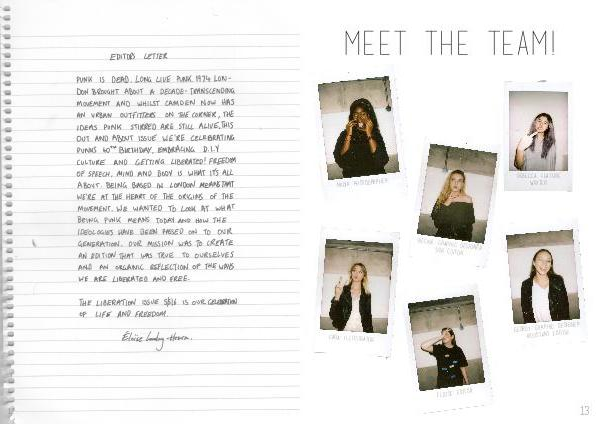 EDITORS LETTER
PUNK IS DEAD. LONG LIVE PUNK. 1974 LON-
DON BROUGHT ABOUT A DECADE-TRANSCENDING
MOVEMENT AND WHILST CAMDEN NOW HAS
AN URBAN OUTFITTERS ON THE CORNER, THE
IDEAS PUNK STIRRED ARE STILL ALIVE, THIS
OUT AND ABOUT ISSUE WE'RE CELEBRATING
PUNKS 40TH BIRTHDAY, EMBRACING D.I.Y
CULTURE AND GETTING LIBERATED! FREEDOM
OF SPEECH, MIND AND BODY IS WHAT IT'S ALL
ABOUT. BEING BASED IN LONDON MEANS THAT
WE'RE AT THE HEART OF THE ORIGINS OF THE
MOVEMENT. WE WANTED TO LOOK AT WHAT
BEING PUNK MEANS TODAY AND HOW THE
IDEOLOGIES HAVE BEEN PASSED ON TO OUR
GENERATION. OUR MISSION WAS TO CREATE
AN EDITION THAT WAS TRUE TO OURSELVES
AND AN ORGANIC REFLECTION OF THE WAYS
WE ARE LIBERATED AND FREE.
THE LIBERATION ISSUE SS16 IS OUR CELEBRATION
OF LIFE AND FREEDOM.
MEET THE TEAM!
PHOTOGRAPHER
REBECCA, FEATURE
WRITER
FASHION DESIGNER
SUB EDITOR
ILLUSTRATOR
GRAPHIC DESIGNER
ASSISTANT EDITOR
ELOISE, EDITOR
13